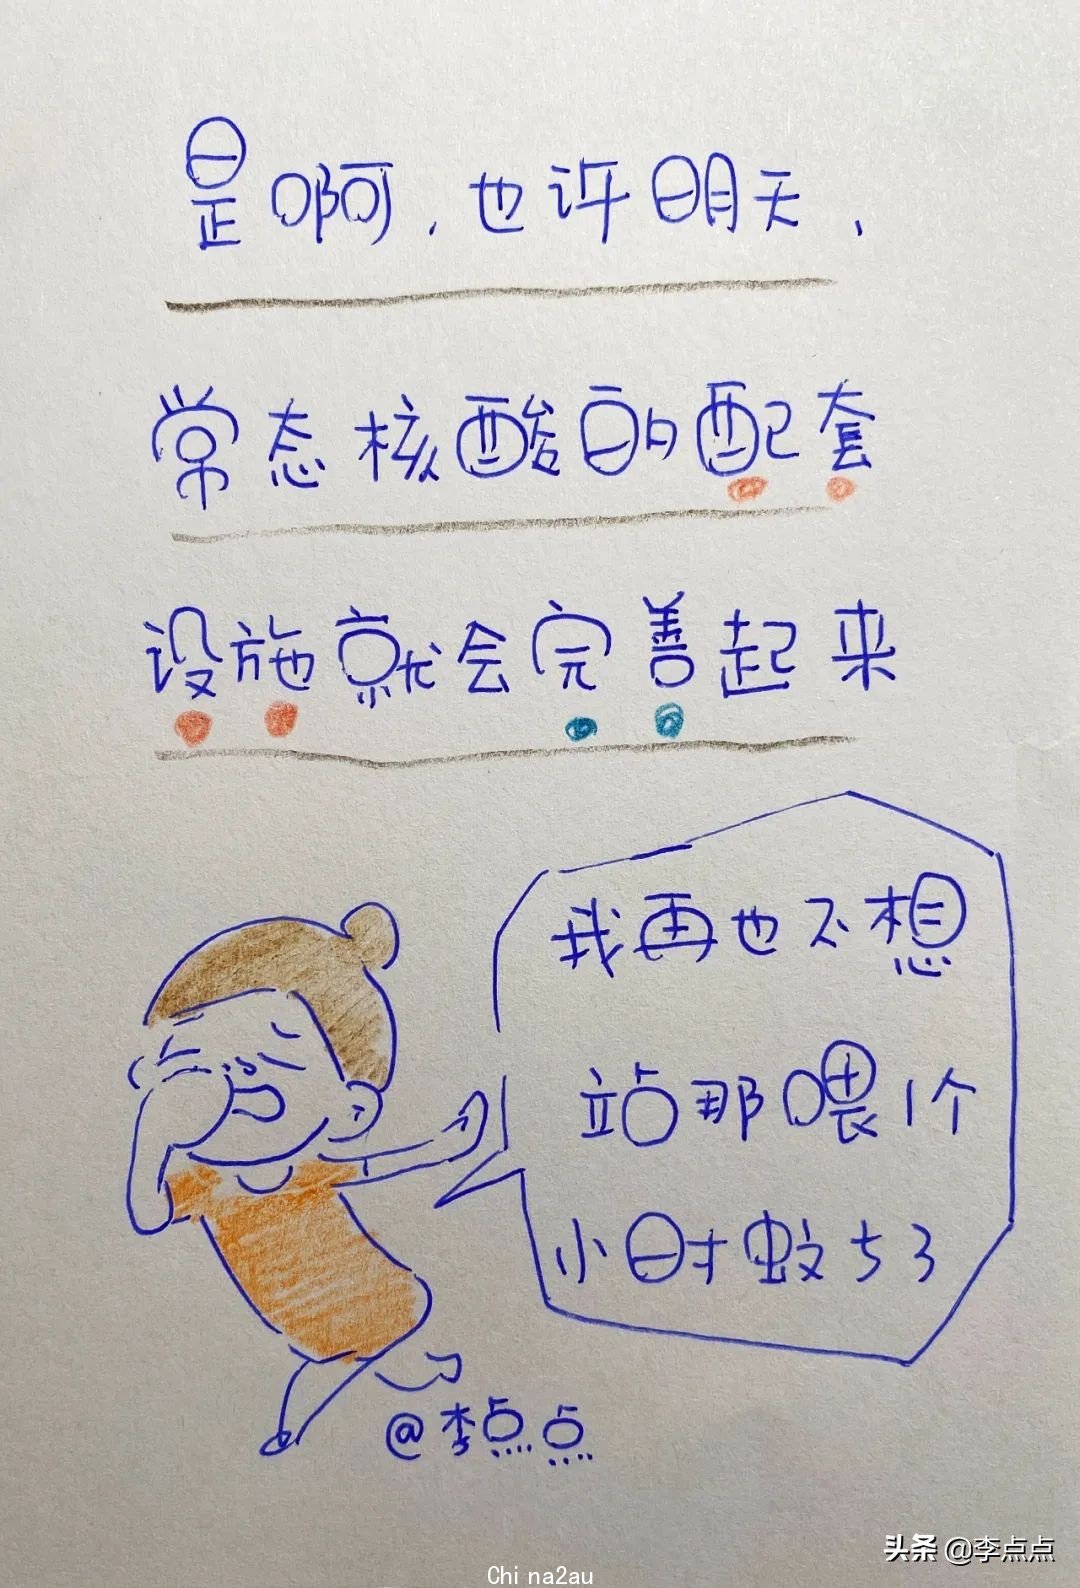 是啊，也许明天，
常态核酸的配套
设施就会完善起来
我再也不想
站那喂1个
小时蚊子了
@李点点
头条 @李点点
China2au